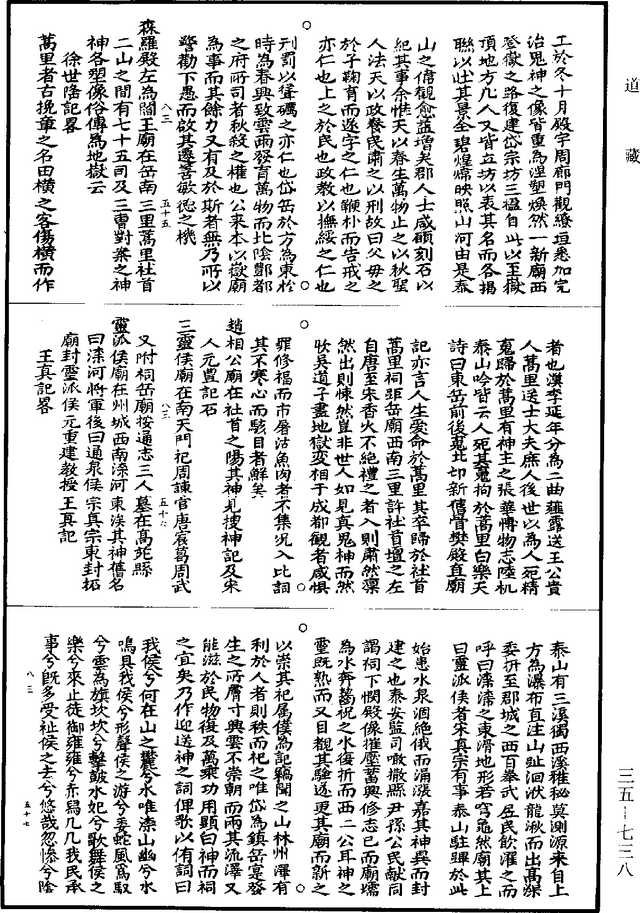 道藏
工於冬十月殿宇周廊門觀繚垣悉加完
治鬼神之像皆重為湼塑煥然一新廟西
登嶽之路復建岱宗坊三楹自此以至嶽
頂地方凡人又皆立坊以表其名而各揭
聯以壯其景金碧煌煌映照山河由是泰
山之偹觀愈益增矣郡人士咸願刻石以
紀其事余惟天以春生萬物止之以秋聖
人法天以政養民肅之以刑故曰父母之
於子鞠育而遂字之仁也鞭朴而告戒之
亦仁也上之於民也政教以撫綏之仁也
刑罰以聳礪之亦仁也岱岳於方為東於
時為春興致雲雨發育萬物而比陰酆都
之府所司者秋殺之權也公来本以嶽廟
為事而其餘力又有及於斯者無乃所以
警勸下愚而啟其遷善敏德之機
森羅殿左為閻王廟在岳南三里蒿里社首
二山之間有七十五司及三曹對案之神
神各塑像俗傳為地獄云
徐世隆記畧
蒿里者古挽章之名田橫之客傷橫而作
者也漢李延年分為二曲薤露送王公貴
人蒿里送士大夫庶人後世以為人死精
䰟歸於蒿里有神主之張華博物志陸机
泰山吟皆云人死其䰟拘於蒿里白樂天
詩曰東岳前後䰟北邙新舊骨樊殿直廟
記亦言人生受命於蒿里其卒歸於社首
蒿里祠距岳廟西南三里許社首壇之左
自唐至朱香火不絕禮之者入則肅然凜
然出則悚然豈非世人如見真鬼神而然
收吳道子畫地獄变相于成都觀者咸惧
罪修福而市屠沽魚肉者不集况入此祠
其不寒心而駭目者鮮矣
趙相公廟在社首之陽其神見搜神記及宋
人元豊記石
三靈侯廟在南天門祀周諫官唐宸葛周武
又附祠岳廟按通志三人墓在高苑縣
靈派侯廟在州城西南漆河東涘其神舊名
曰漆河將軍後曰通泉侯宗真宗東封祏
廟封靈派侯元重建教授王真記
王真記畧
泰山有三溪獨西溪雅秘莫測源来自上
方為瀑布直注山趾洄洑龍湫而出高深
委折至郡城之西百拳武居民飲濯之而
呼曰漆濟之東滑地形若穹龜然廟其上
曰靈派侯者宋真宗有事泰山駐驆於此
始患水泉涸絶俄而涌漲嘉其神異而封
建之也泰安監司噉撒縣尹孫公民献同
謁祠下憫殿像摧壓葺興修志已而廟壖
為水奔蕩祝之水復折而西二公耳神之
靈既熟而又目觀其驗遂更其廟而新之
以崇其祀属僕為記竊聞之山林州澤有
利於人者則秩而祀之唯岱為鎮岳寔發
生之所膚寸興雲不崇朝而兩其流澤又
能滋於民物復及萬乗功用顯白神而祠
之宜矣乃作迎送神之詞俾歌以侑詞曰
我侯兮何在山之麓兮水唯漆山幽兮水
鳴具我侯兮形聲侯之游兮委蛇風寫馭
兮雲為旗坎坎兮擊皷水妃兮歌舞侯之
樂兮來止徒御雍雍兮赤舄几几我民承
事兮既多受祉侯之去兮悠哉忽慘兮陰
八三
五十五
八三
五十六
八三
五十七
三五—七三八